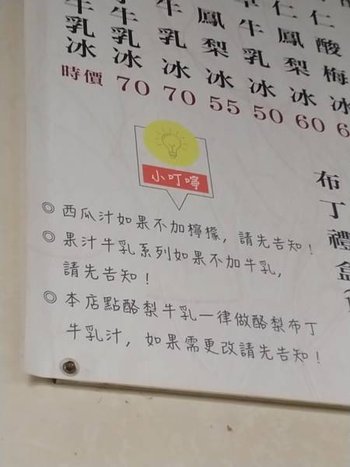 牛乳冰 時價
牛乳冰 70
鳳牛乳冰 70
鳳梨冰 55
牛乳冰 50
仁鳳梨冰 60
仁酸梅冰 6
布丁禮盒
小叮嚀
◎西瓜汁如果不加檸檬，請先告知！
◎果汁牛乳系列如果不加牛乳，
請先告知！
◎本店點酪梨牛乳一律做酪梨布丁
牛乳汁，如果需更改請先告知！